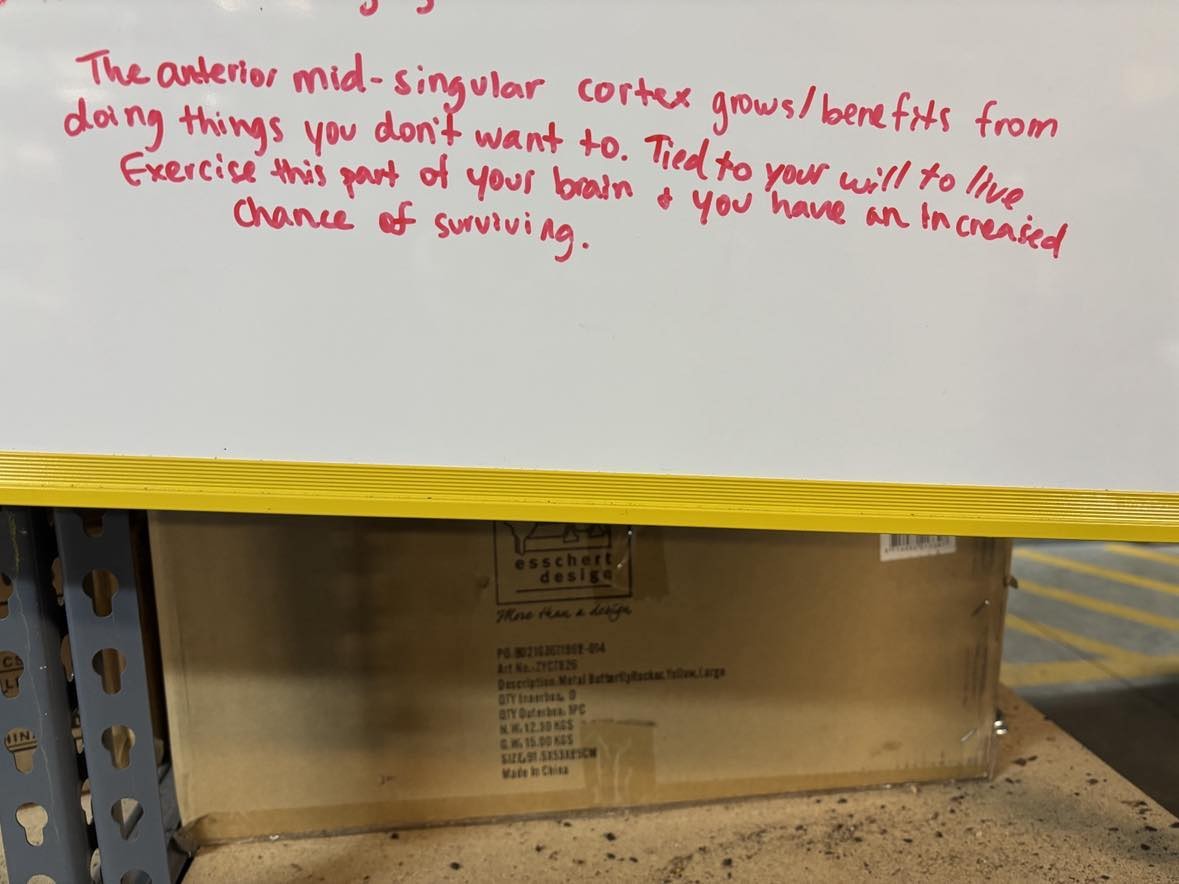 The anterior mid-singular cortex grows/benefits from
doing things you don't want to. Tied to your will to live
Exercise this part of your brain & you have an increased
chance of surviving.
esschert
design
More than a design
Art.No.:
Description: Metal Butterfly Rocker, Yellow, Large
QTY Innerbox. 0
QTY Outerbox. 1PC
N.W. 12.30 KGS
G.W. 15.00 KGS
Made In China